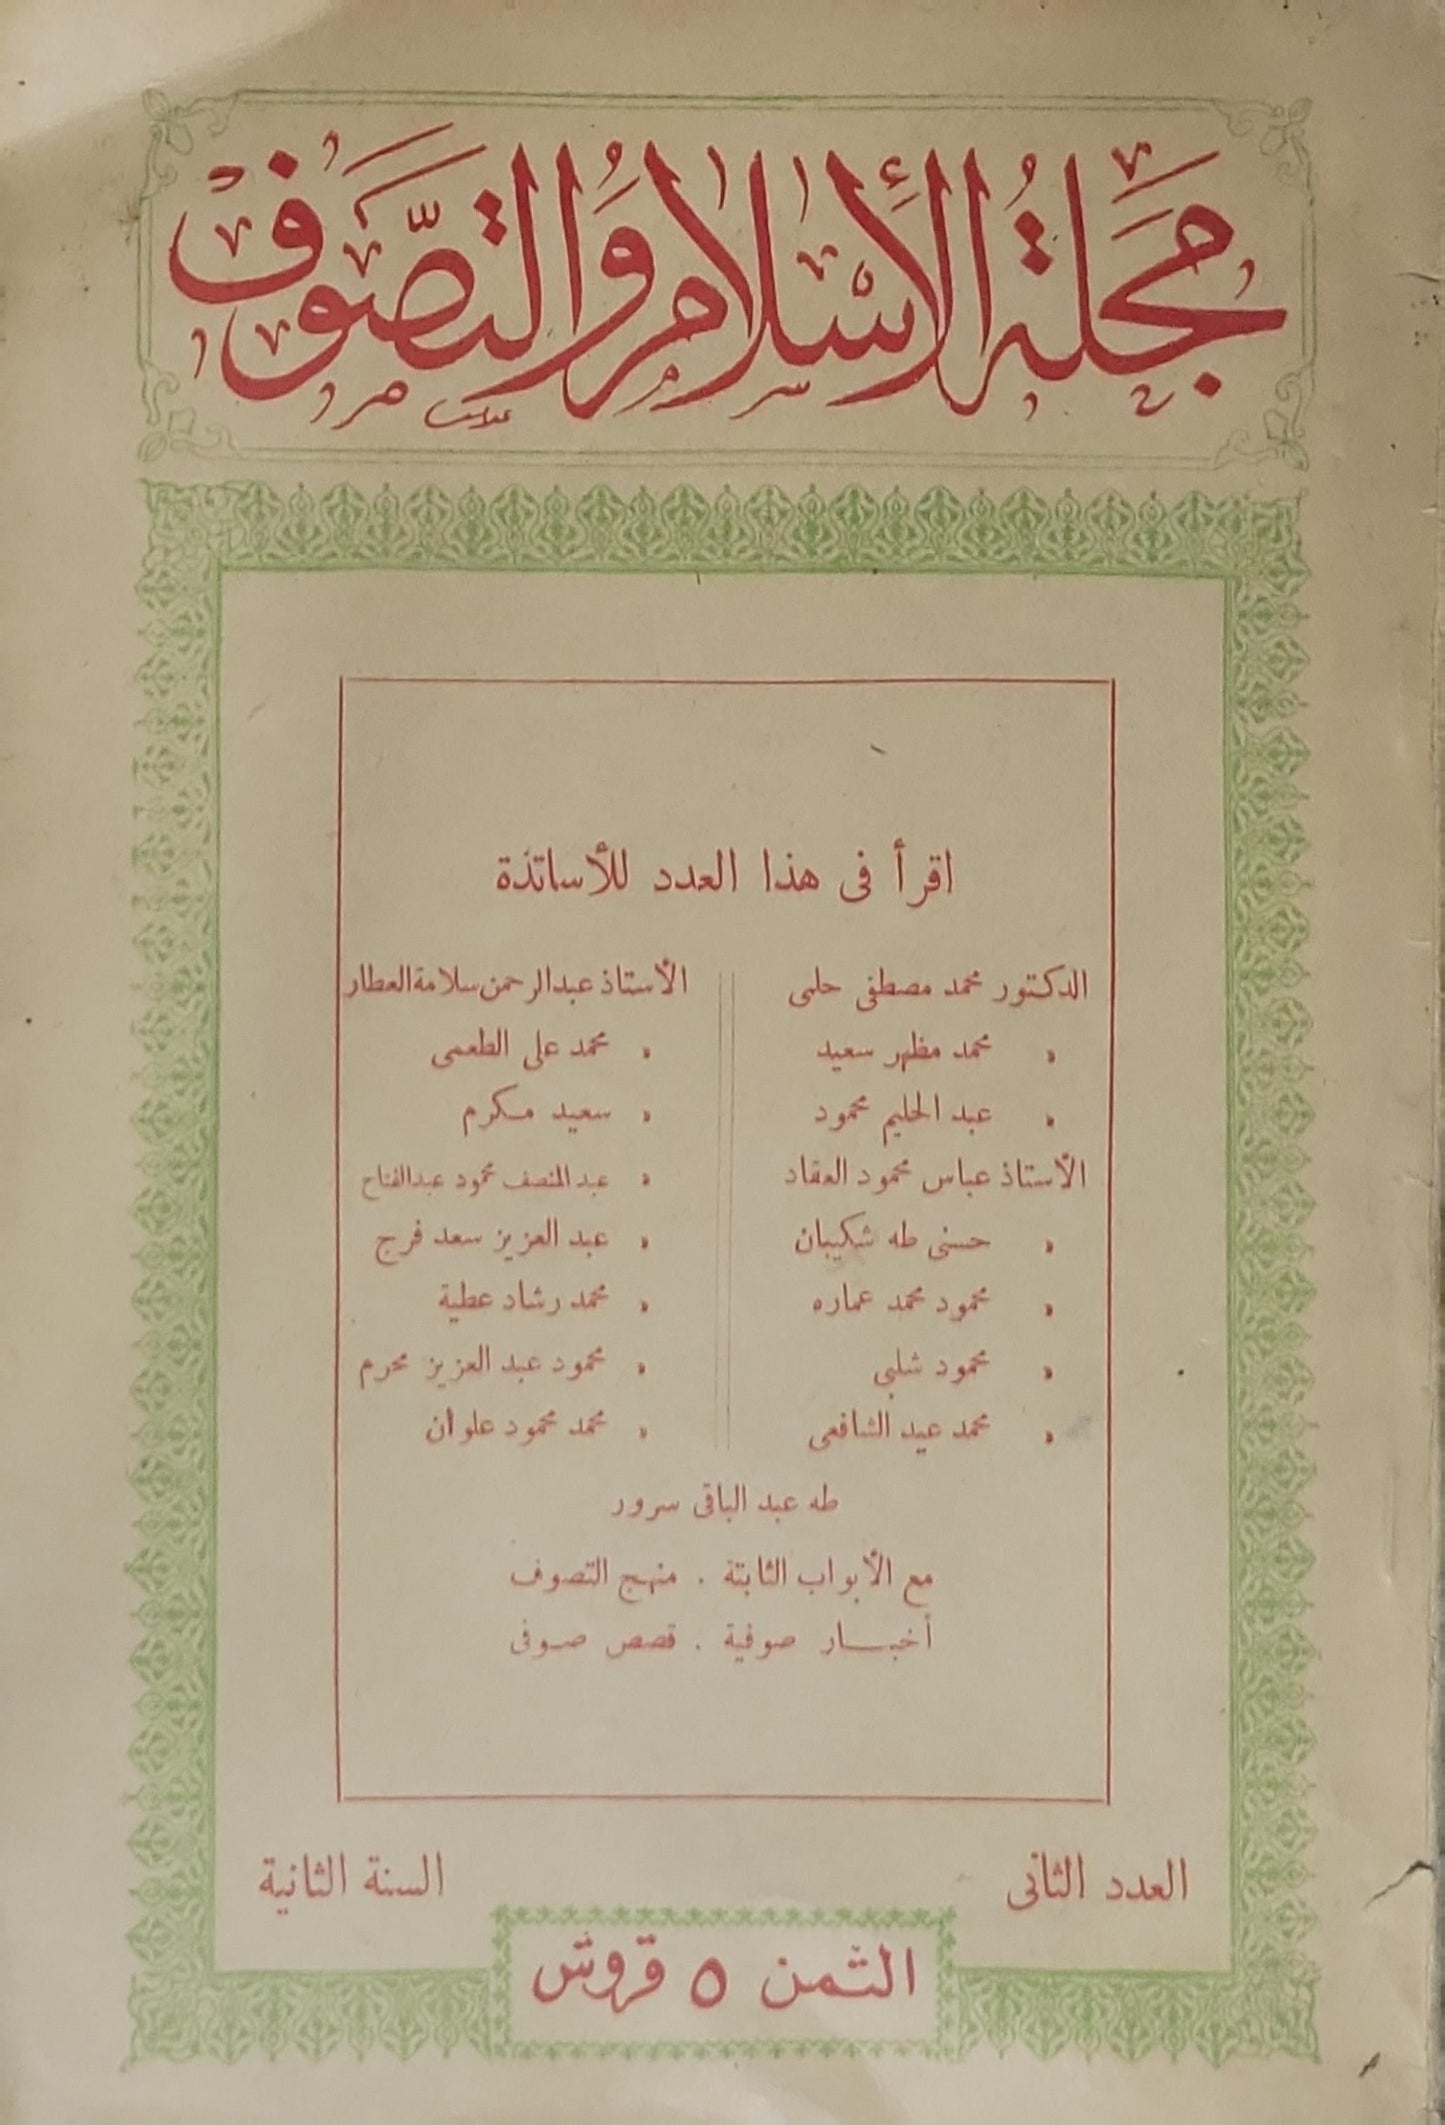 مَجَلَّةُ الْإِسْلَامِ وَالتَّصَوُّفِ
اقرأ فى هذا العدد للأساتذة
الدكتور محمد مصطفى حلمى
» محمد مظهر سعيد
» عبد الحليم محمود
الأستاذ عباس محمود العقاد
» حسنى طه شكيبان
» محمود محمد عماره
» محمود شلبى
» محمد عيد الشافعى
الأستاذ عبد الرحمن سلامة العطار
» محمد على الطعمى
» سعيد مكرم
» عبد المنصف محمود عبد الفتاح
» عبد العزيز سعد فرج
» محمد رشاد عطية
» محمود عبد العزيز محرم
» محمد محمود علوان
طه عبد الباقى سرور
مع الأبواب الثابتة . منهج التصوف
أخبـار صوفية . قصص صوفى
العدد الثانى
السنة الثانية
الثمن ٥ قروش